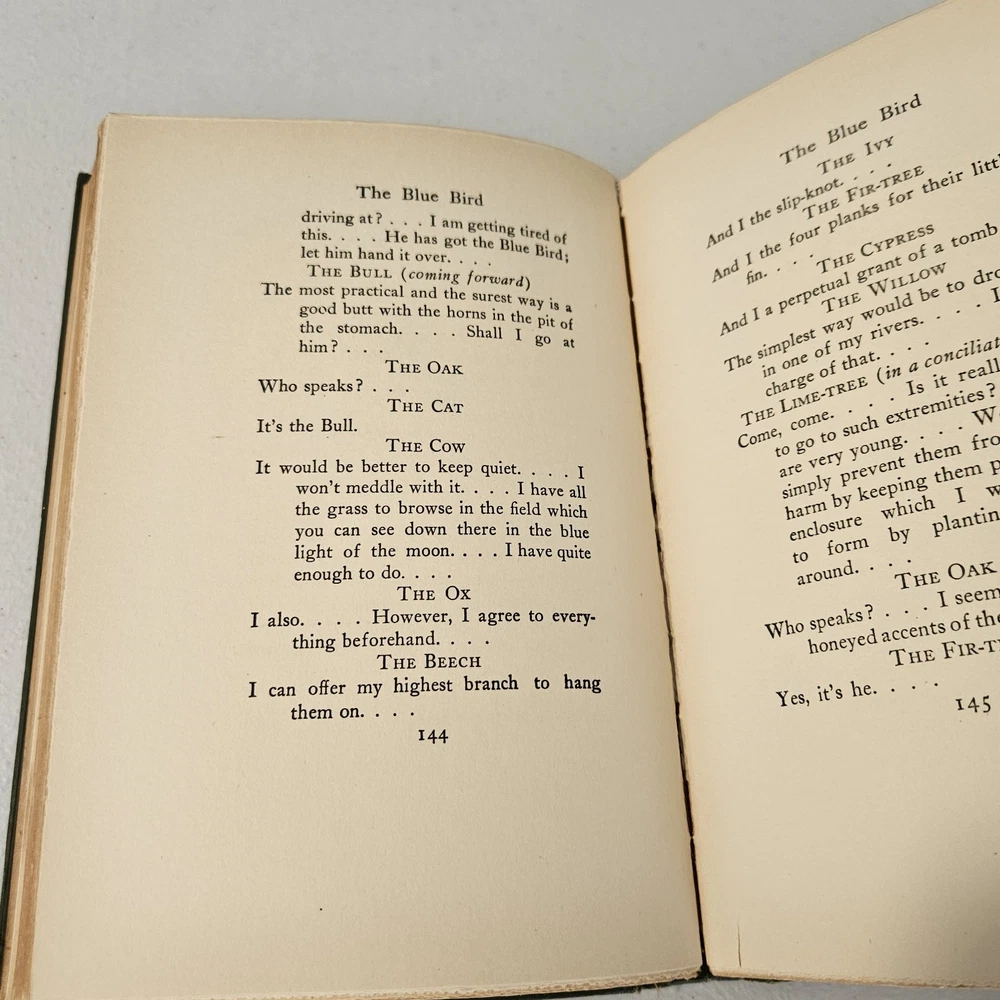 The Blue Bird
driving at? . . . I am getting tired of
this. . . . He has got the Blue Bird;
let him hand it over. . . .
THE BULL (coming forward)
The most practical and the surest way is a
good butt with the horns in the pit of
the stomach. . . . Shall I go at
him? . . .
THE OAK
Who speaks? . . .
THE CAT
It's the Bull.
THE COW
It would be better to keep quiet. . . . I
won't meddle with it. . . . I have all
the grass to browse in the field which
you can see down there in the blue
light of the moon. . . . I have quite
enough to do. . . .
THE OX
I also. . . . However, I agree to every-
thing beforehand. . . .
THE BEECH
I can offer my highest branch to hang
them on. . . .
144
The Blue Bird
THE IVY
And I the slip-knot. . . .
THE FIR-TREE
And I the four planks for their
fin. . . .
THE CYPRESS
And I a perpetual grant of a tomb
THE WILLOW
The simplest way would be to
in one of my rivers. . . . I
charge of that. . . .
THE LIME-TREE (in a
Come, come. . . . Is it
to go to such extremities?
are very young. . . .
simply prevent them
harm by keeping them
enclosure which I
to form by
around. . . .
THE OAK
Who speaks? . . . I seem
honeyed accents of the
THE
Yes, it's he. . . .
145